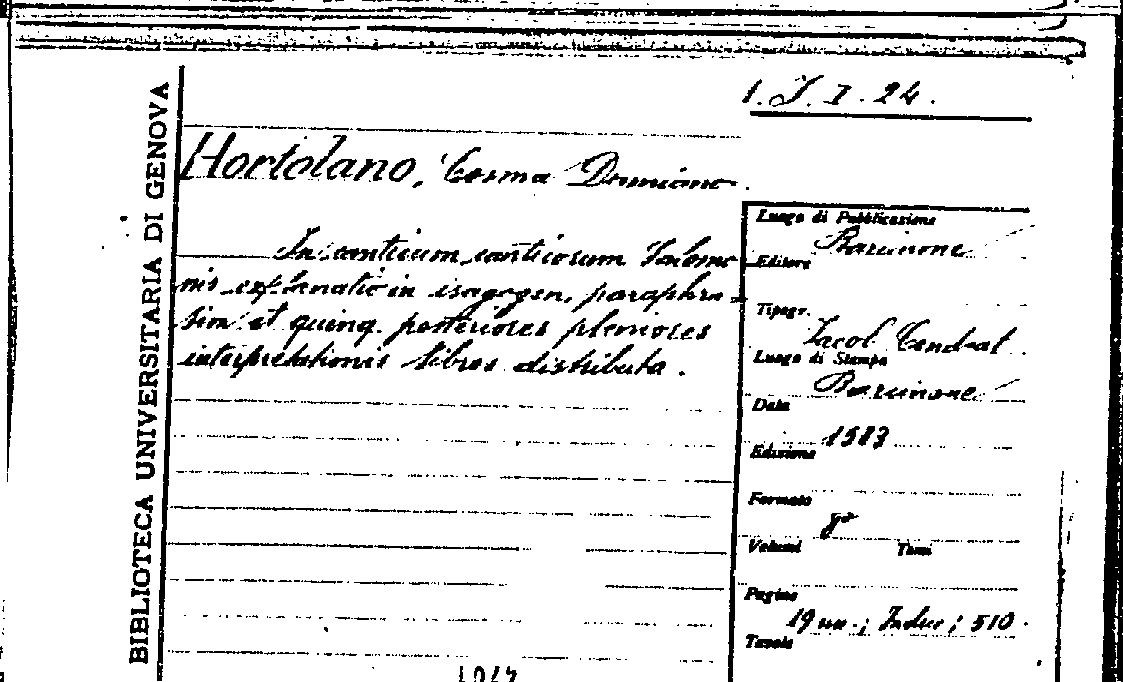 1. J. I. 24.
BIBLIOTECA UNIVERSITARIA DI GENOVA
Hortolano, Cosma Damiano.
In canticum canticorum Salomo
nis explanatio in isagogen, paraphra=
sim et quinq. posteriores pleniores
interpretationis libros distributa.
Luogo di Pubblicazione
Barcinone
Editore
Tipogr.
Iacob Cendrat.
Luogo di Stampa
Barcinone
Data
1583
Edizione
Formato
8°
Volumi Tomi
Pagine
19 nn.; Index; 510.
Tavole